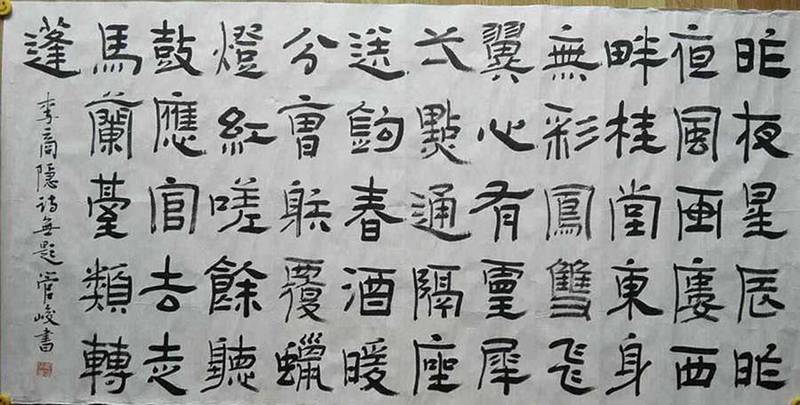 昨夜星辰昨
夜風画廔西
畔桂堂東身
無彩鳳雙飛
翼心有靈犀
弌點通隔座
送鉤春酒暖
分曹䠶覆蠟
燈紅嗟餘聽
鼓應官去走
馬蘭臺類轉
蓬
李商隱詩無題管峻書